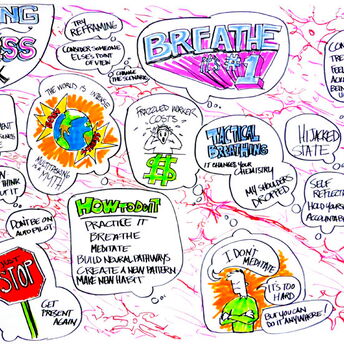 TRY
REFRAMING
CONSIDER SOMEONE
ELSE'S POINT
OF VIEW
CHANGE THE SCENARIO
BREATHE
#1
THE WORLD IS INTENSE
MULTITASKING
IS A
MYTH
FRAZZLED WORKER
COSTS
$
TACTICAL
BREATHING
IT CHANGES YOUR
CHEMISTRY
MY SHOULDERS
DROPPED
HIJACKED
STATE
SELF
HOLD
HOW TO DO IT
PRACTICE IT
BREATHE
MEDITATE
BUILD NEURAL PATHWAYS
CREATE A NEW PATTERN
MAKE NEW HABIT
DON'T BE ON
AUTO PILOT
STOP
GET
PRESENT
AGAIN
I DON'T
MEDITATE
IT'S TOO
HARD
BUT YOU CAN
DO IT ANYWHERE!